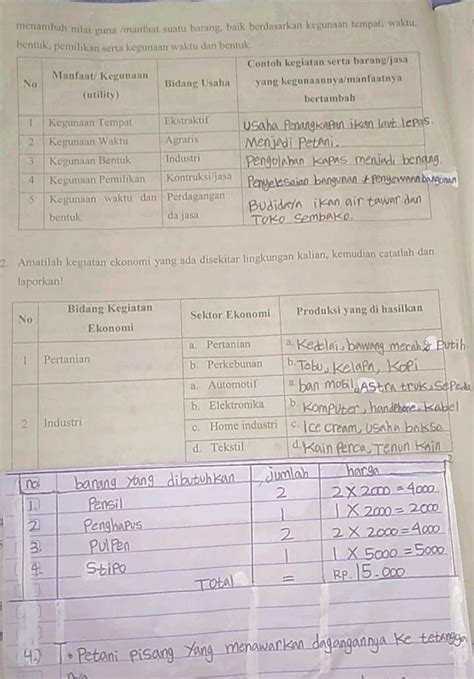 menambah nilai guna /manfaat suatu barang, baik berdasarkan kegunaan tempat, waktu,
bentuk, pemilikan serta kegunaan waktu dan bentuk.
No
Manfaat/ Kegunaan
(utility)
Bidang Usaha
Contoh kegiatan serta barang/jasa
yang kegunaannya/manfaatnya
bertambah
1 Kegunaan Tempat Ekstraktif Usaha Penangkapan ikan laut lepas.
2 Kegunaan Waktu Agraris Menjadi Petani.
3 Kegunaan Bentuk Industri Pengolahan kapas menjadi benang.
4 Kegunaan Pemilikan Kontruksi/jasa Penyelesaian bangunan & Penyewaan bangunan
5 Kegunaan waktu dan Perdagangan Budidaya ikan air tawar dan
bentuk da jasa Toko Sembako.
2. Amatilah kegiatan ekonomi yang ada disekitar lingkungan kalian, kemudian catatlah dan
laporkan!
No
Bidang Kegiatan
Ekonomi
Sektor Ekonomi Produksi yang di hasilkan
1 Pertanian
a. Pertanian a. Kedelai, bawang merah & Putih.
b. Perkebunan b. Tebu, kelapa, Kopi
2 Industri
a. Automotif a. ban mobil, Astra truk, Sepeda
b. Elektronika b. Komputer, handphone, kabel
c. Home industri c. Ice cream, usaha bakso
d. Tekstil d. Kain Perca, Tenun Kain
no. barang yang dibutuhkan jumlah harga
1. Pensil 2 2 x 2000 = 4000
2 Penghapus 1 1 x 2000 = 2000
3. Pulpen 2 2 x 2000 = 4000
4. Stipo 1 1 x 5000 = 5000
Total = Rp. 15.000
4.) • Petani pisang yang menawarkan dagangannya ke tetangga